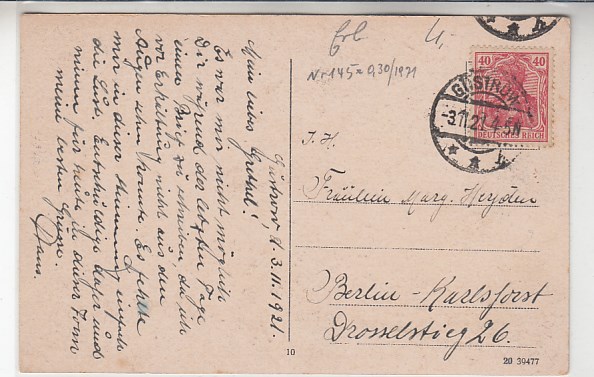 Güstrow, d. 3.11.1921.
Mein liebes Gretul!
Es war mir nicht möglich
Dir während der letzten Tage
einen Brief zu schreiben da ich
vor Erkältung nicht aus den
Augen sehen konnte. Es fehlte
mir in dieser Stimmung einfach
die Lust. Entschuldige daher und
nimm für heute in dieser Form
meine ersten Grüsse.
Dein
Nr 145 = 0,30/1921
40
40
DEUTSCHES REICH
GÜSTROW
-3.11.21.4-5N
I. H.
Fräulein Marg. Heyden
Berlin-Karlshorst
Drosselstieg 26.
10
20 39477